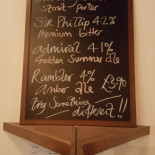 stout / porter
Sir Phillip 4.2%
Premium bitter
admiral 4.1%
Golden Summer ale
Rambler 4%
amber ale £3.90
Try Something
different!!